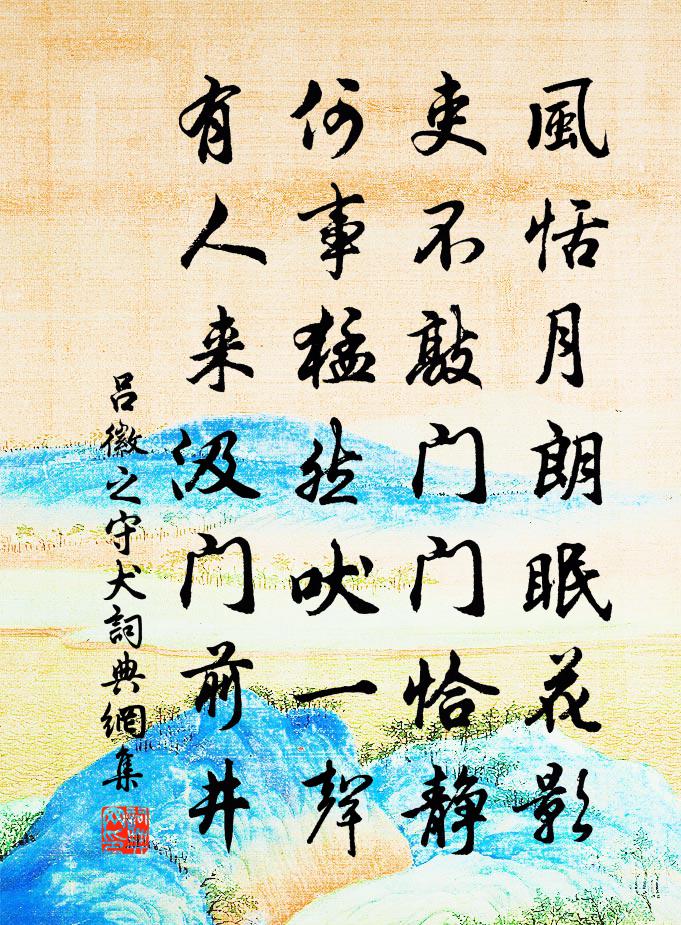 風恬月朗眠花影
吏不敲门门恰静
何事猛然吠一聲
有人来汲门前井
吕徽之守犬詞典網集